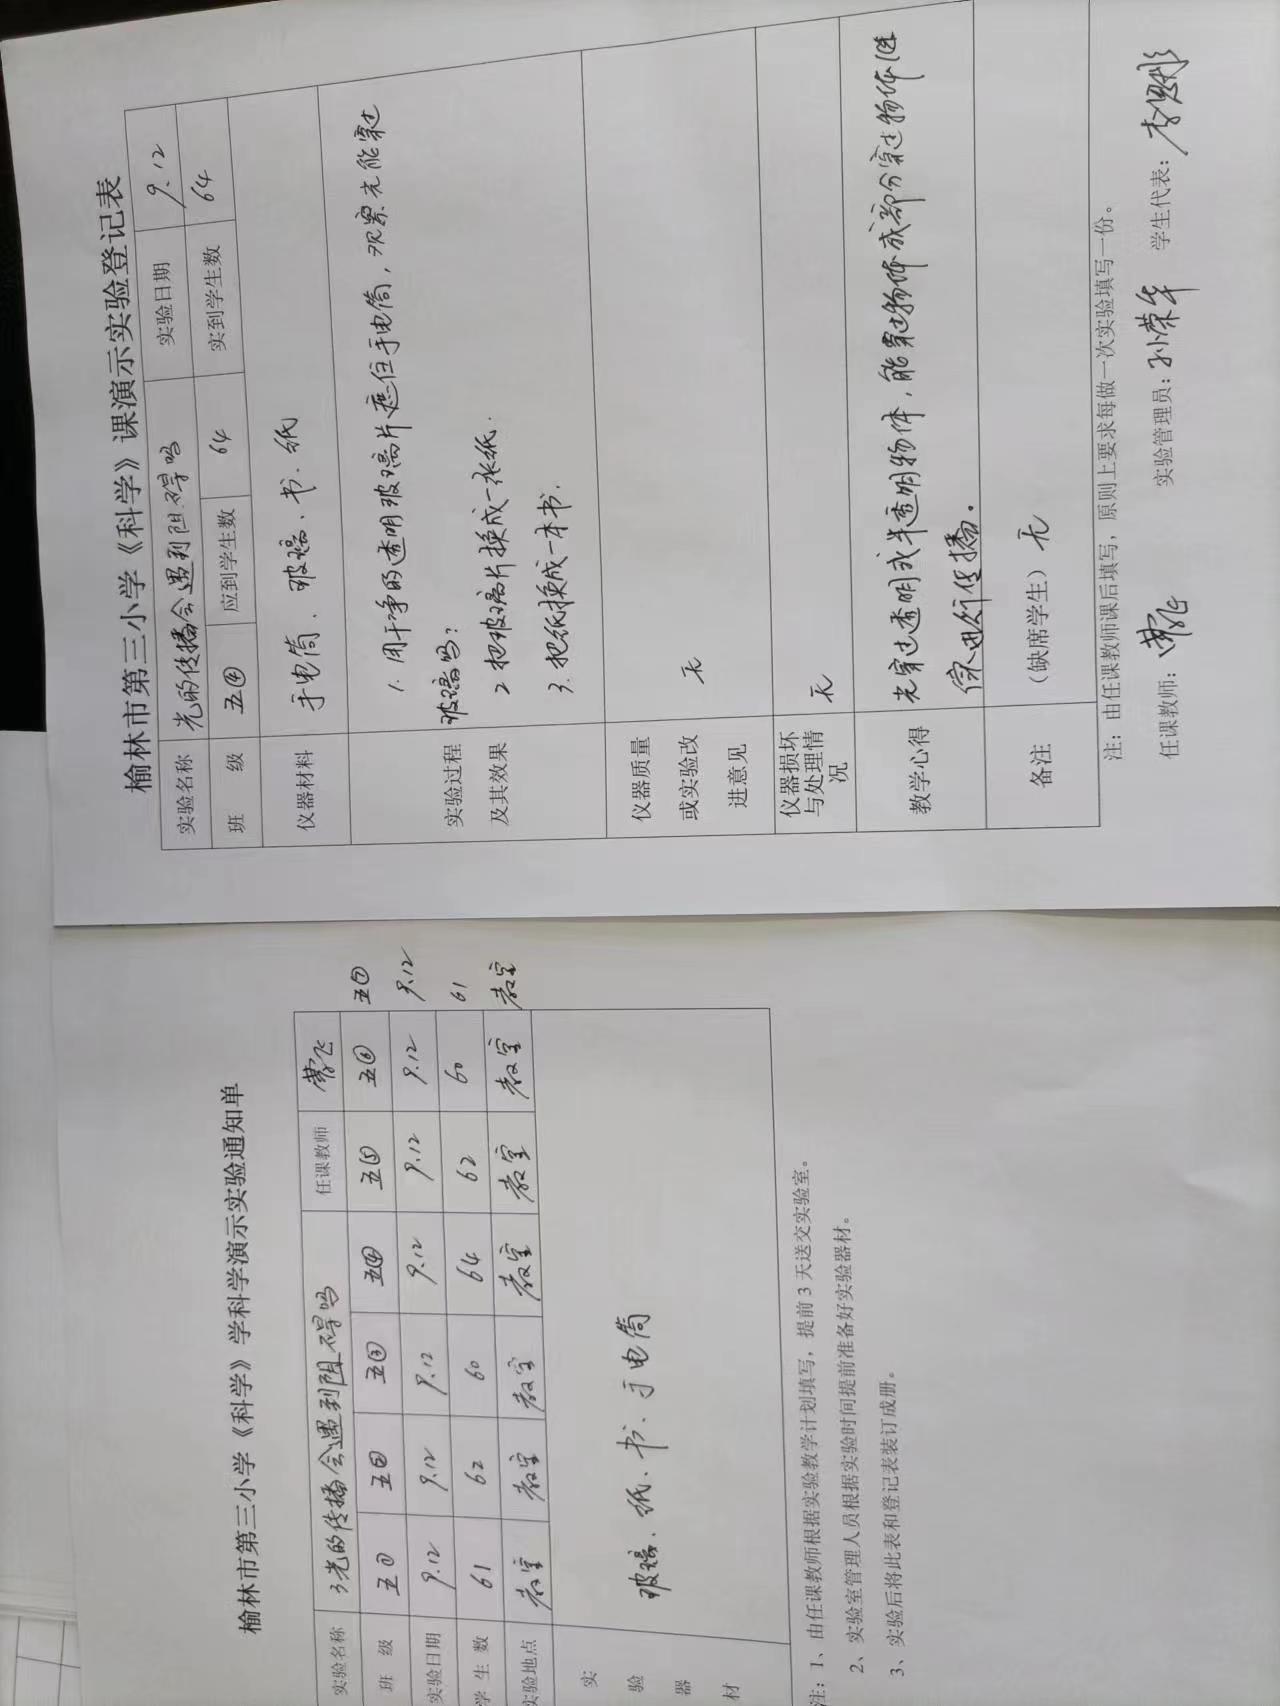 榆林市第三小学《科学》课演示实验登记表
实验名称 光的传播会遇到阻碍吗 实验日期 9.12
班 级 五④ 应到学生数 64 实到学生数 64
仪器材料 手电筒、玻璃、书、纸
实验过程及其效果
1. 用干净的透明玻璃片遮住手电筒，观察光能穿过
玻璃吗？
2 把玻璃片换成一张纸.
3. 把纸换成一本书.
仪器质量或实验改进意见 无
仪器损坏与处理情况 无
教学心得 光穿过透明或半透明物体，能穿过物体或部分穿过物体继
续进行传播。
备注 （缺席学生）无
注：由任课教师课后填写，原则上要求每做一次实验填写一份。
任课教师： 实验管理员：孙荣年 学生代表：李
榆林市第三小学《科学》学科学演示实验通知单
实验名称 3光的传播会遇到阻碍吗 任课教师
班 级 五① 五② 五③ 五④ 五⑤ 五⑥ 五⑦
实验日期 9.12 9.12 9.12 9.12 9.12 9.12 9.12
学 生 数 61 62 60 64 62 60 61
实验地点 教室 教室 教室 教室 教室 教室 教室
实验器材 玻璃、纸、书、手电筒
注：1、由任课教师根据实验教学计划填写，提前 3 天送交实验室。
2、实验室管理人员根据实验时间提前准备好实验器材。
3、实验后将此表和登记表装订成册。